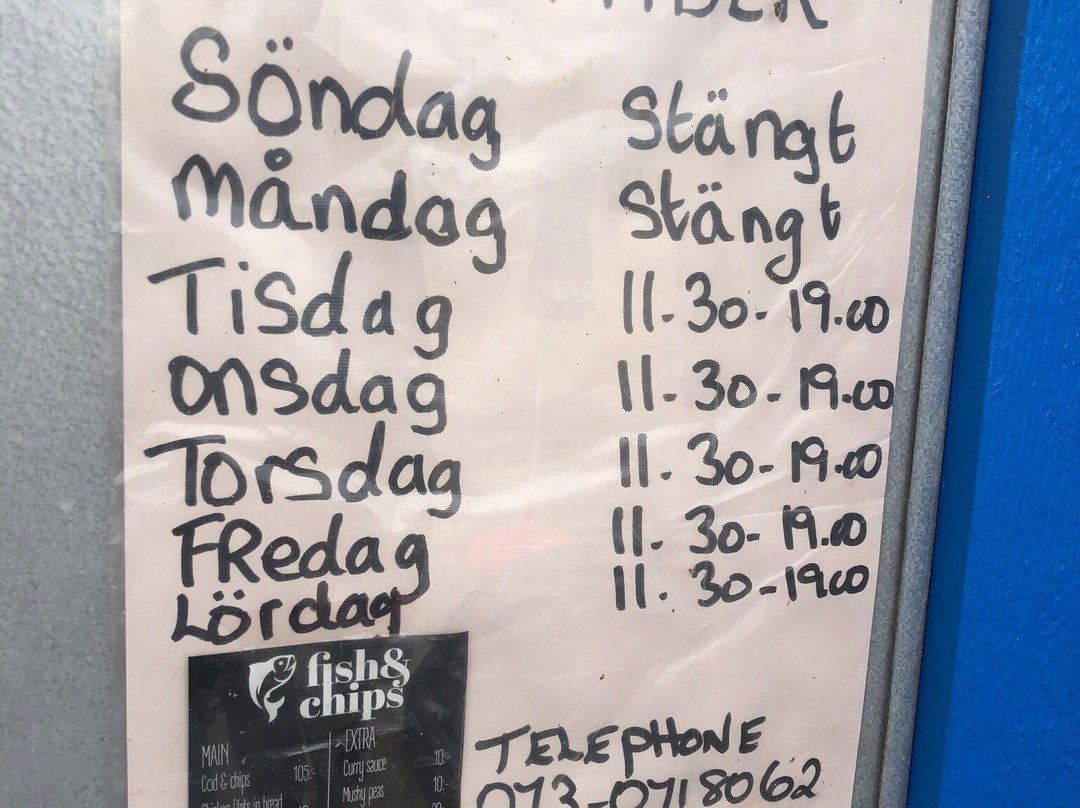 Söndag Stängt
måndag Stängt
Tisdag 11.30-19.00
onsdag 11.30-19.00
Torsdag 11.30-19.00
FRedag 11.30-19.00
Lördag 11.30-1900
fish&
chips
MAIN
Cod & chips 105:-
EXTRA
Curry sauce 10:-
Mushy peas 10:-
TELEPHONE
073-0718062